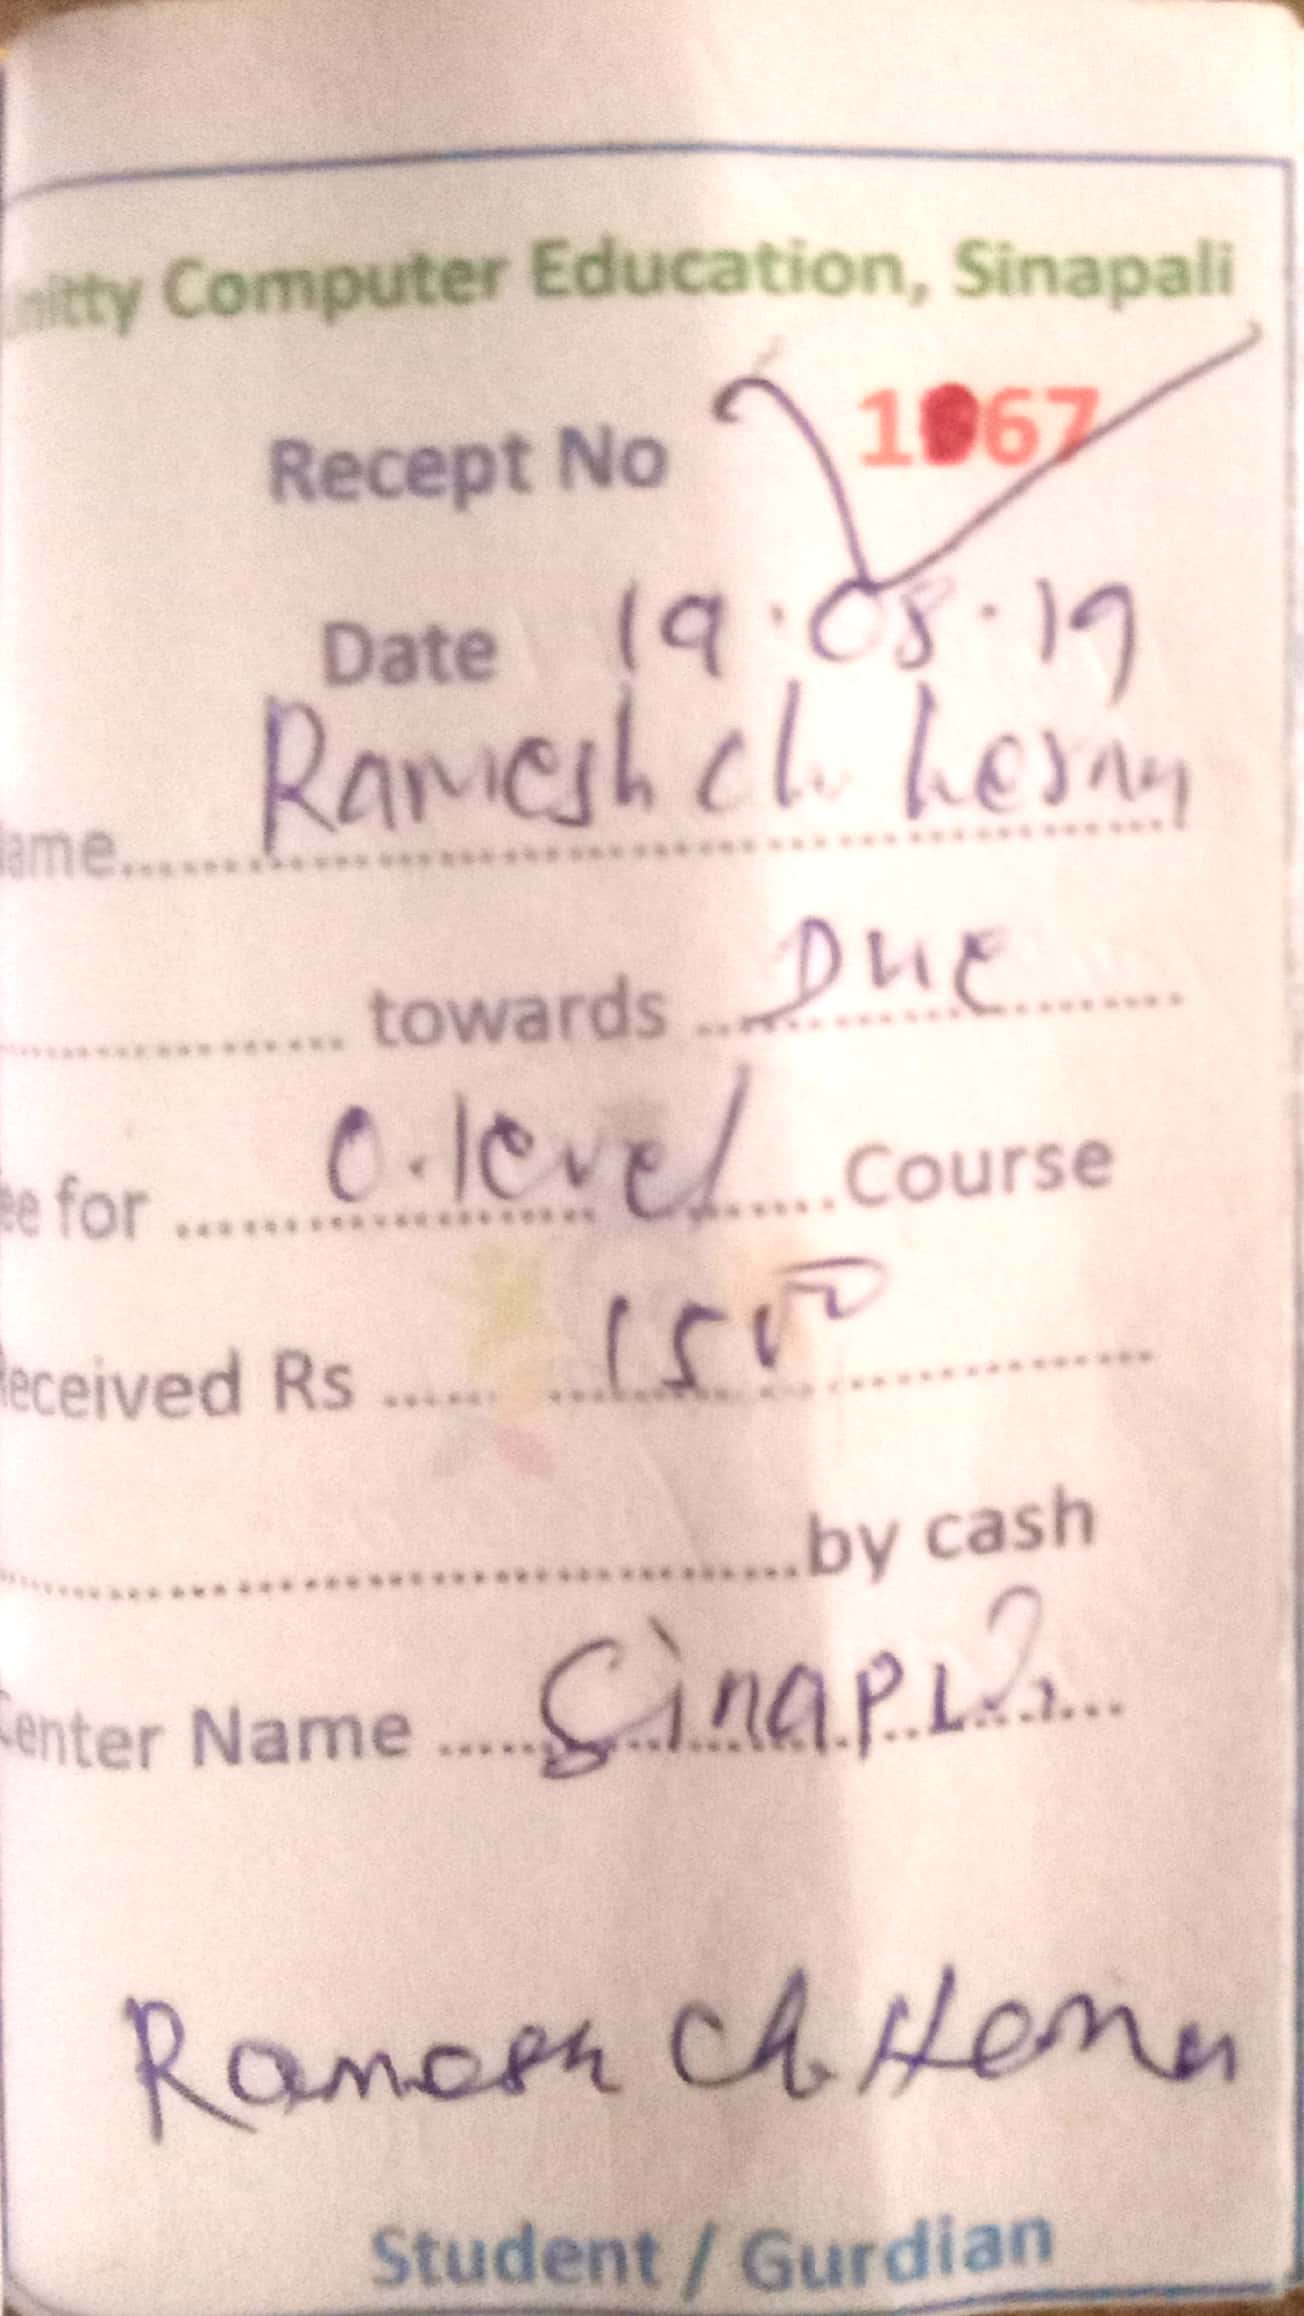 nitty Computer Education, Sinapali
Recept No 1067
Date 19.08.19
Ramesh ch.
ame
towards Due
ee for O.level Course
eceived Rs 1500
by cash
enter Name
Ramesh Ch.
Student / Gurdian